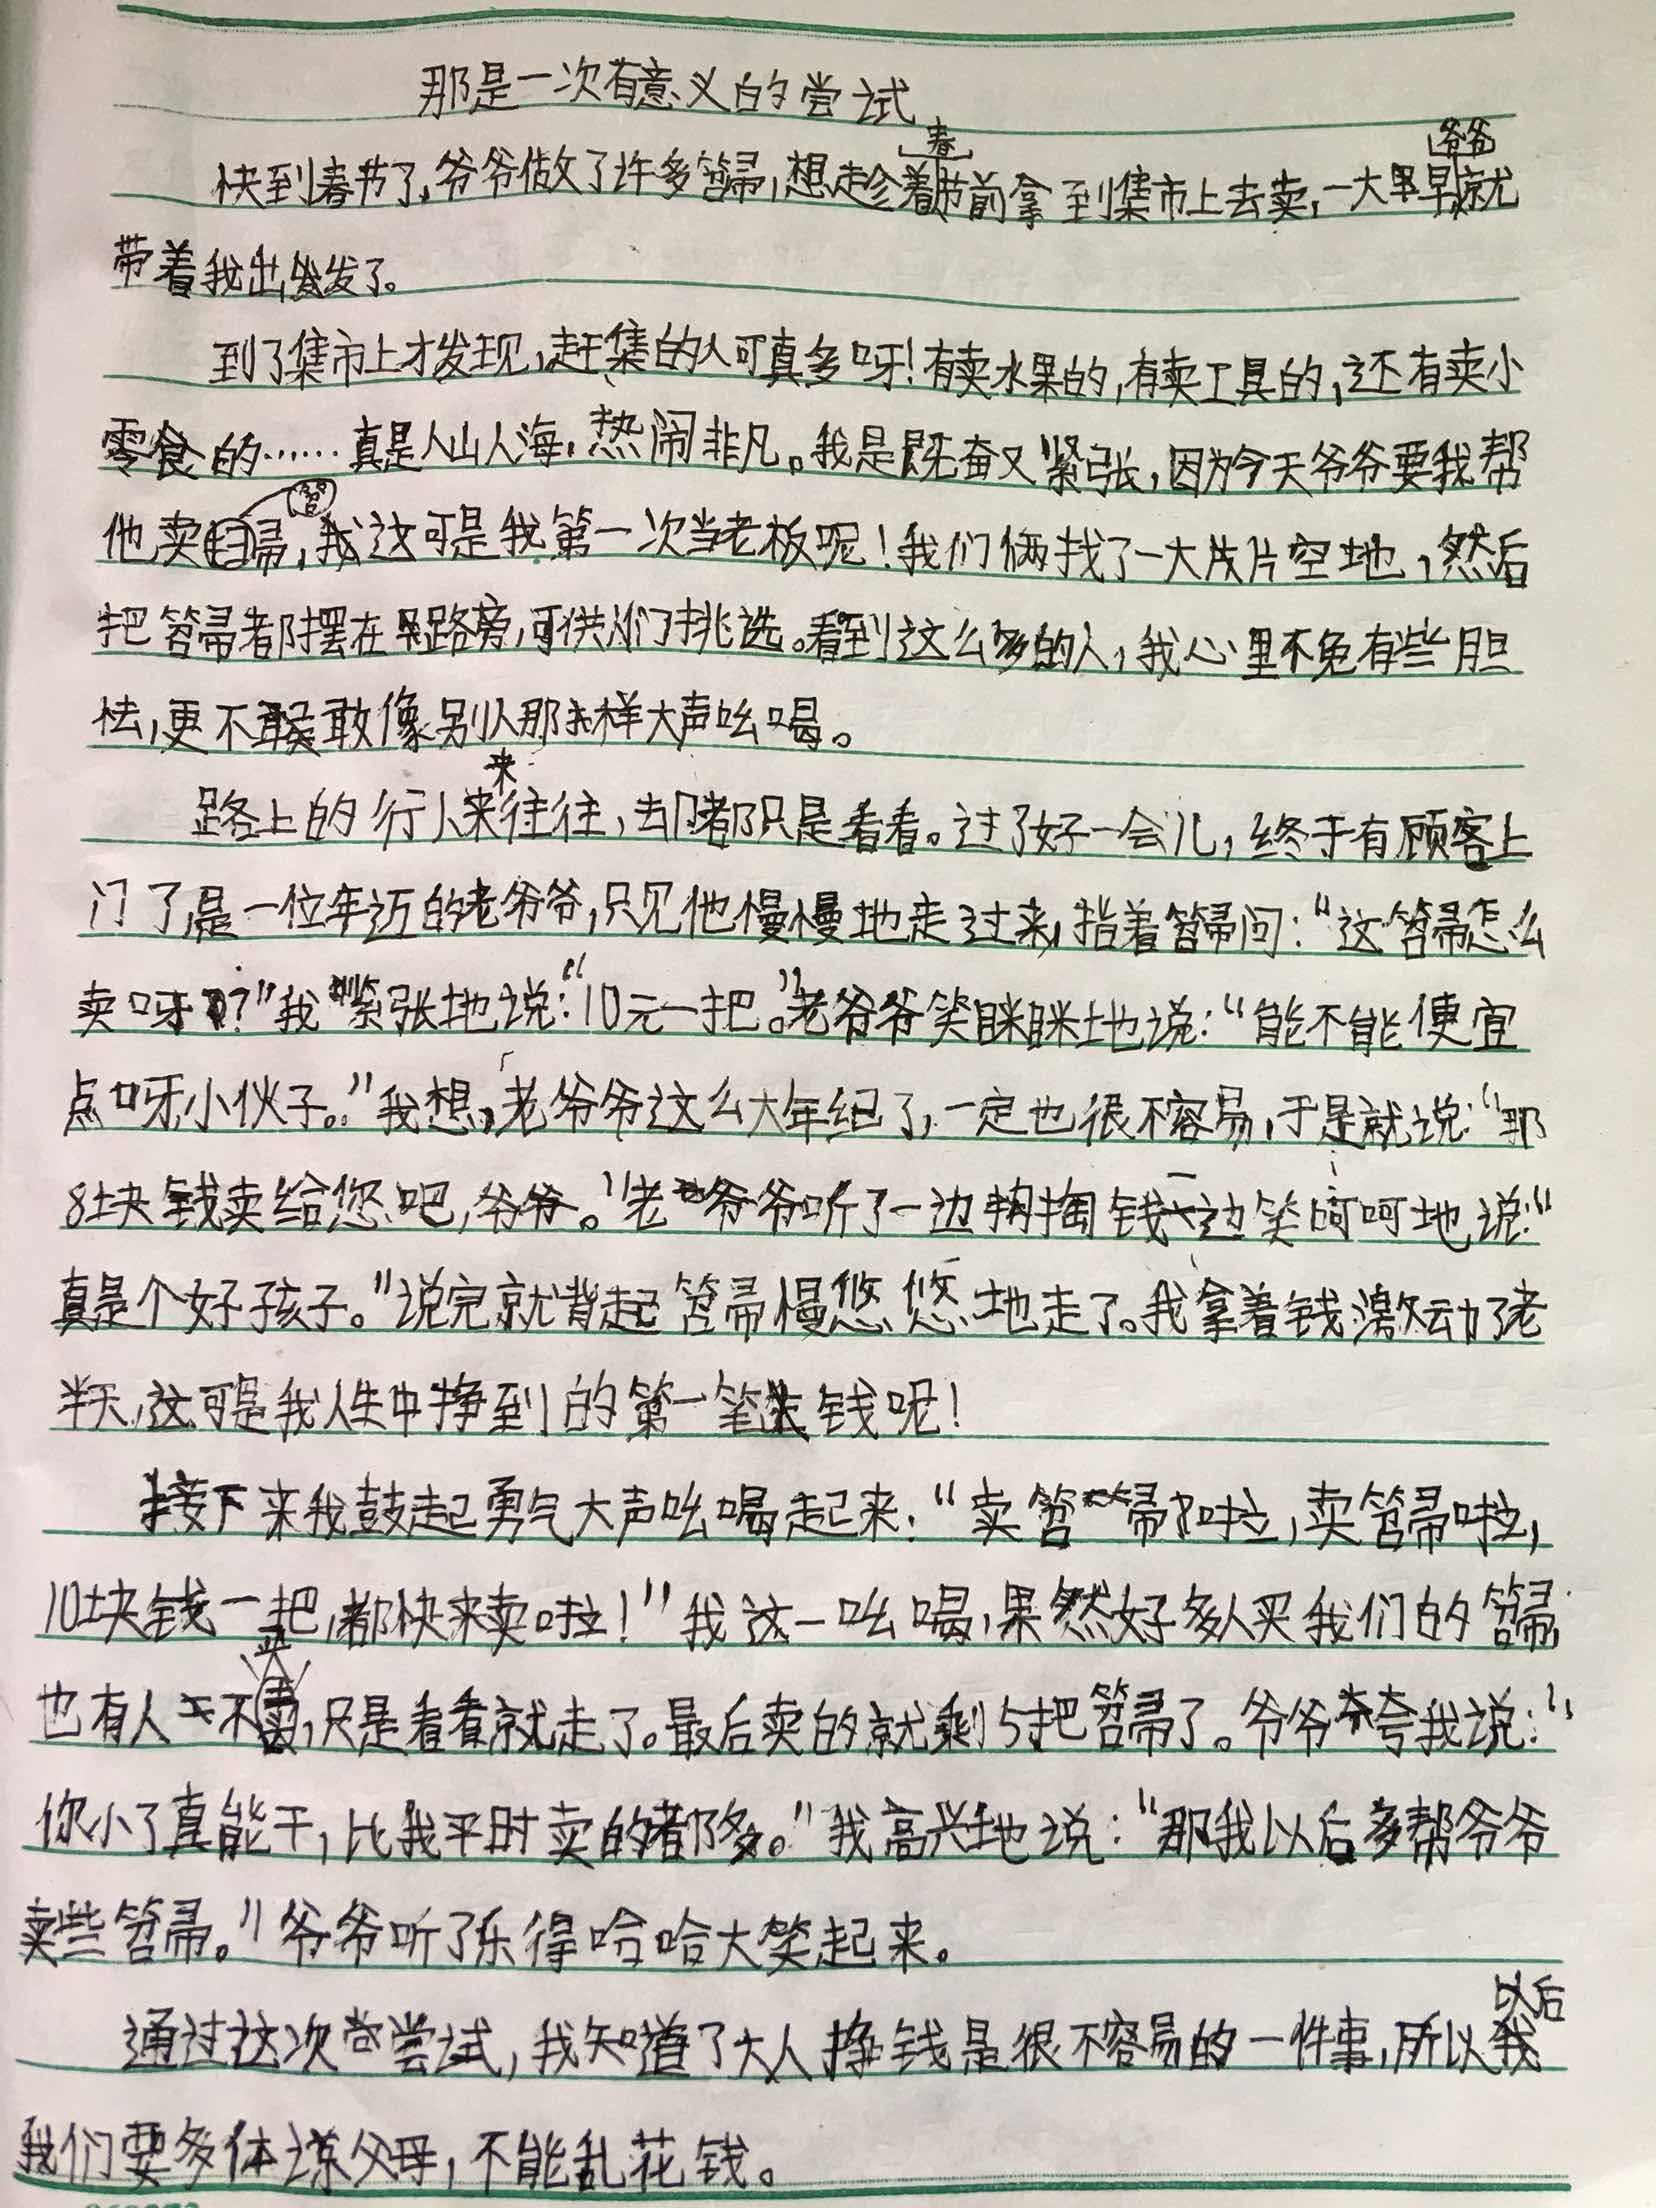 那是一次有意义的尝试
快到春节了,爷爷做了许多笤帚,想趁着春节前拿到集市上去卖,一大早爷爷就
带着我出发了。
到了集市上才发现,赶集的人可真多呀!有卖水果的,有卖工具的,还有卖小
零食的……真是人山人海,热闹非凡。我是既奋又紧张,因为今天爷爷要我帮
他卖笤帚,这可是我第一次当老板呢!我们俩找了一大片空地,然后
把笤帚都摆在路旁,可供人们挑选。看到这么多的人,我心里不免有些胆
怯,更不敢像别人那样大声吆喝。
路上的行人来来往往,却都只是看看。过了好一会儿,终于有顾客上
门了,是一位年迈的老爷爷,只见他慢慢地走过来,指着笤帚问:“这笤帚怎么
卖呀?”我紧张地说:“10元一把。”老爷爷笑眯眯地说:“能不能便宜
点呀,小伙子。”我想,老爷爷这么大年纪了,一定也很不容易,于是就说:“那
8块钱卖给您吧,爷爷。”老爷爷听了一边掏钱一边笑呵呵地说:“
真是个好孩子。”说完就背起笤帚慢悠悠地走了。我拿着钱激动了老
半天,这可是我人生中挣到的第一笔钱呢!
接下来我鼓起勇气大声吆喝起来:“卖笤帚啦,卖笤帚啦,
10块钱一把,都快来卖啦!”我这一吆喝,果然好多人买我们的笤帚,
也有人不买,只是看看就走了。最后卖的就剩5把笤帚了。爷爷夸我说:“
你小子真能干,比我平时卖的都多。”我高兴地说:“那我以后多帮爷爷
卖些笤帚。”爷爷听了乐得哈哈大笑起来。
通过这次尝试,我知道了大人挣钱是很不容易的一件事,所以以后
我们要多体谅父母,不能乱花钱。